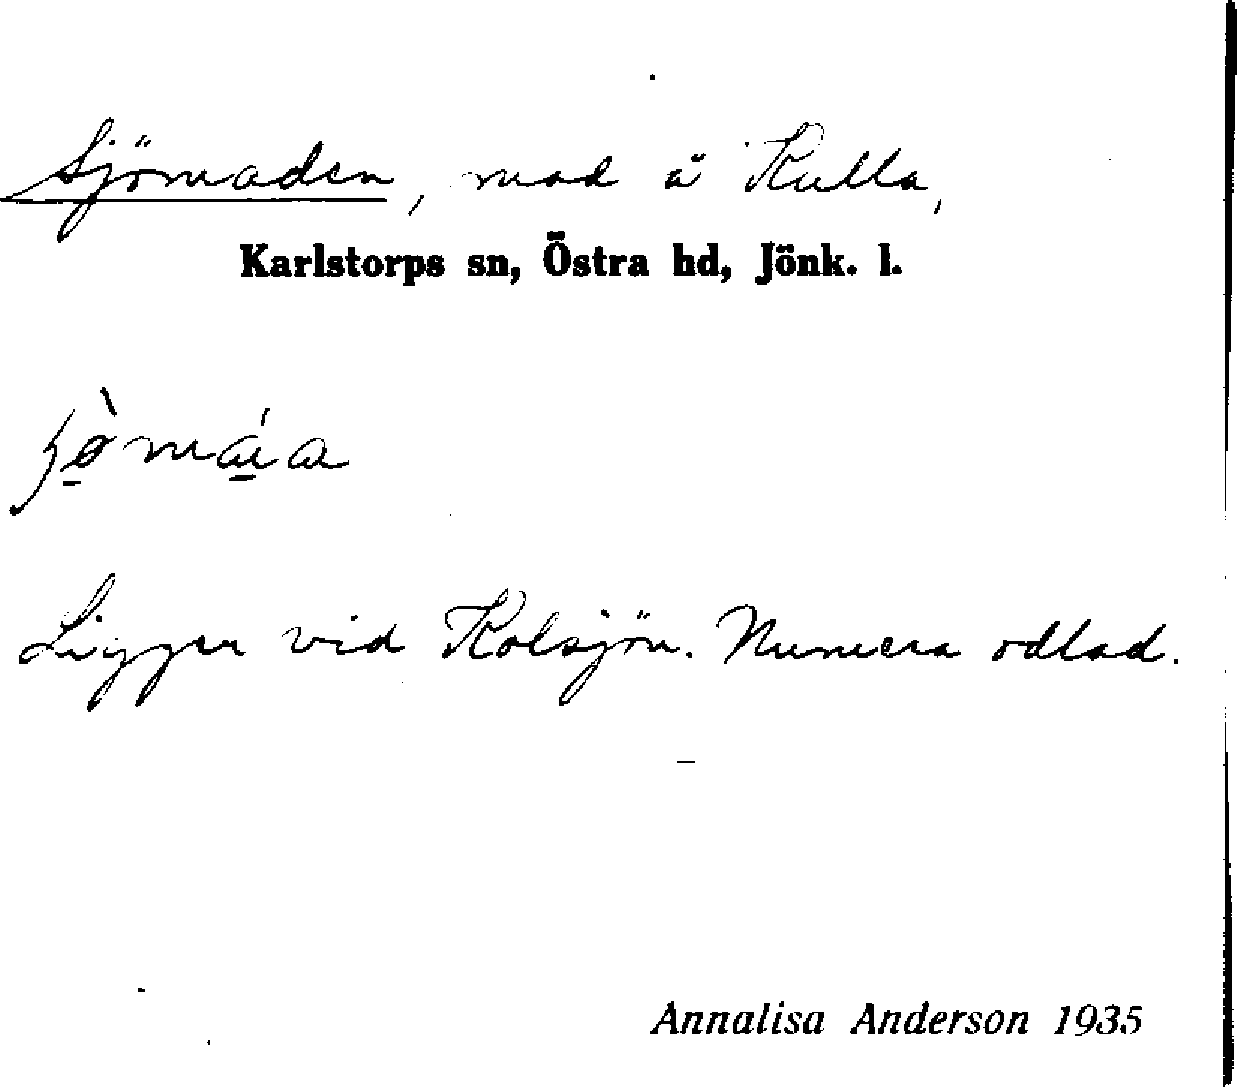 Sjömaden, mad å Kulla,
Karlstorps sn, Östra hd, Jönk. l.
Ligger vid Kolsjön. Numera odlad.
Annalisa Anderson 1935